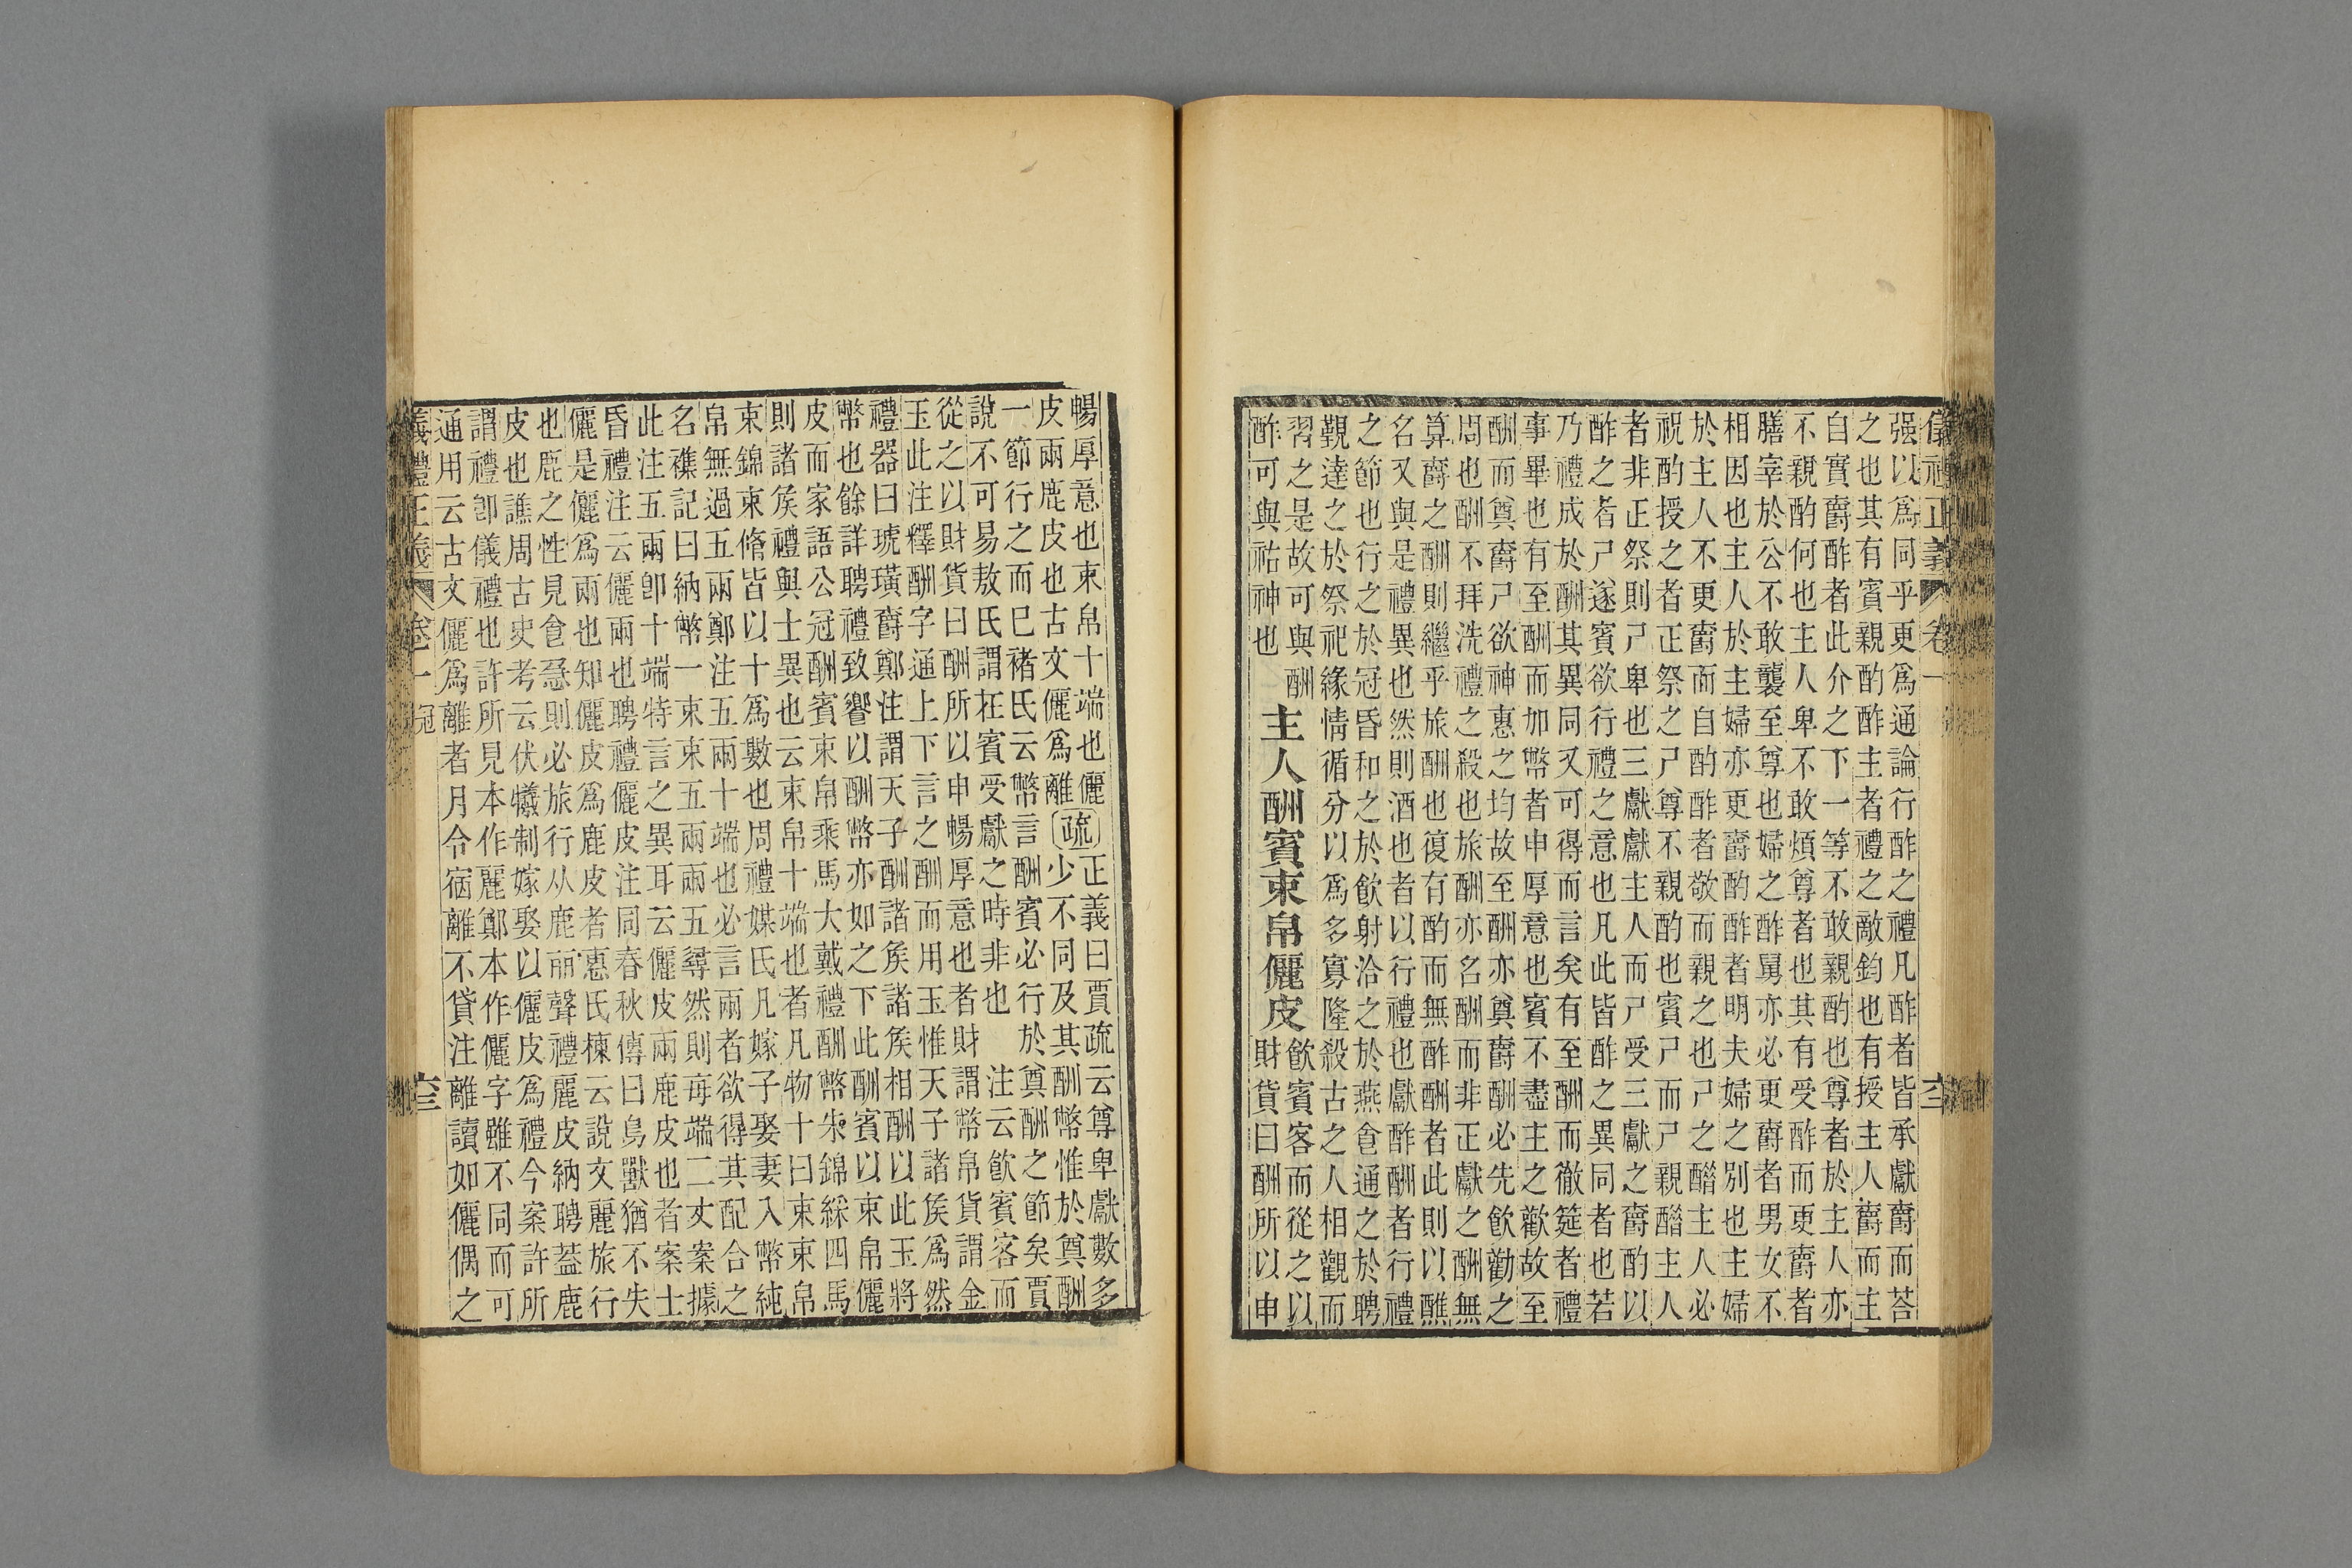 儀禮正義 卷一 六三
强以爲同乎更爲通論行酢之禮凡酢者皆承獻爵而荅
之也其有賓親酌酢主者禮之敵鈞也有授主人爵而主
自實爵酢者此介之下一等不敢親酌也尊者於主人亦
不親酌何也主人卑不敢煩尊者也其有受酢而更爵者
膳宰於公不敢襲至尊也婦之酢舅亦必更爵者男女不
相因也主人於主婦亦更爵酌酢者明夫婦之別也主婦
於主人不更爵而自酌酢者敬而親之也尸之醋主人必
祝酌授之者正祭之尸尊不親酌也賓尸而尸親醋主人
者非正祭則尸卑也三獻獻主人而尸受三獻之爵酌以
酢之者尸遂賓欲行禮之意也凡此皆酢之異同者也若
乃禮成於酬其異同又可得而言矣有至酬而徹筵者禮
事畢也有至酬而加幣者申厚意也賓不盡主之歡故至
酬而奠爵尸欲神惠之均故至酬亦奠爵酬必先飲勸之
周也酬不拜洗禮之殺也旅酬亦名酬而非正獻之酬無
算爵之酬則繼乎旅酬也復有酌而無酢酬者此則以醮
名又與是禮異也然則酒也者以行禮也獻酢酬者行禮
之節也行之於冠昏和之於飲射洽之於燕食通之於聘
覲達之於祭祀緣情循分以爲多寡隆殺古之人相觀而
習之是故可與酬
酢可與祐神也
主人酬賓束帛儷皮
飲賓客而從之以
財貨曰酬所以申
暢厚意也束帛十端也儷
皮兩鹿皮也古文儷爲離
疏
正義曰賈疏云尊卑獻數多
少不同及其酬幣惟於奠酬
一節行之而巳褚氏云幣言酬賓必行於奠酬之節矣賈
說不可易敖氏謂在賓受獻之時非也 注云飲賓客而
從之以財貨曰酬所以申暢厚意也者財謂幣帛貨謂金
玉此注釋酬字通上下言之酬而用玉惟天子諸矦爲然
禮器曰琥璜爵鄭注謂天子酬諸矦諸矦相酬以此玉將
幣也餘詳聘禮致饗以酬幣亦如之下此酬賓以束帛儷
皮而家語公冠酬賓束帛乘馬大戴禮酬幣朱錦綵四馬
則諸矦禮與士異也云束帛十端也者凡物十曰束束帛
束錦束脩皆以十爲數也周禮媒氏凡嫁子娶妻入幣純
帛無過五兩鄭注五兩十端也必言兩者欲得其配合之
名襍記曰納幣一束束五兩兩五尋然則每端二丈案據
此注五兩卽十端特言之異耳云儷皮兩鹿皮也者案士
昏禮注云儷兩也聘禮儷皮注同春秋傳曰鳥獸猶不失
儷是儷爲兩也知儷皮爲鹿皮者惠氏棟云說文麗旅行
也鹿之性見食急則必旅行从鹿丽聲禮麗皮納聘蓋鹿
皮也譙周古史考云伏犧制嫁娶以儷皮爲禮今案許所
謂禮卽儀禮也許所見本作麗鄭本作儷字雖不同而可
通用云古文儷爲離者月令宿離不貸注離讀如儷偶之
儀禮正義 卷一 冠 六三